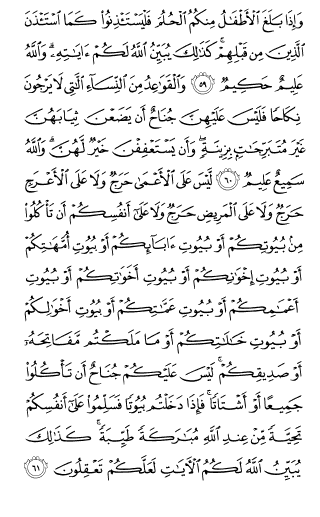 وَإِذَا بَلَغَ ٱلْأَطْفَـٰلُ مِنكُمُ ٱلْحُلُمَ فَلْيَسْتَـْٔذِنُوا۟ كَمَا ٱسْتَـْٔذَنَ
ٱلَّذِينَ مِن قَبْلِهِمْ ۚ كَذَٰلِكَ يُبَيِّنُ ٱللَّهُ لَكُمْ ءَايَـٰتِهِۦ ۗ وَٱللَّهُ
عَلِيمٌ حَكِيمٌ ٥٩ وَٱلْقَوَٰعِدُ مِنَ ٱلنِّسَآءِ ٱلَّـٰتِى لَا يَرْجُونَ
نِكَاحًا فَلَيْسَ عَلَيْهِنَّ جُنَاحٌ أَن يَضَعْنَ ثِيَابَهُنَّ
غَيْرَ مُتَبَرِّجَـٰتٍۭ بِزِينَةٍ ۖ وَأَن يَسْتَعْفِفْنَ خَيْرٌ لَّهُنَّ ۗ وَٱللَّهُ
سَمِيعٌ عَلِيمٌ ٦٠ لَّيْسَ عَلَى ٱلْأَعْمَىٰ حَرَجٌ وَلَا عَلَى ٱلْأَعْرَجِ
حَرَجٌ وَلَا عَلَى ٱلْمَرِيضِ حَرَجٌ وَلَا عَلَىٰٓ أَنفُسِكُمْ أَن تَأْكُلُوا۟
مِنۢ بُيُوتِكُمْ أَوْ بُيُوتِ ءَابَآئِكُمْ أَوْ بُيُوتِ أُمَّهَـٰتِكُمْ
أَوْ بُيُوتِ إِخْوَٰنِكُمْ أَوْ بُيُوتِ أَخَوَٰتِكُمْ أَوْ بُيُوتِ
أَعْمَـٰمِكُمْ أَوْ بُيُوتِ عَمَّـٰتِكُمْ أَوْ بُيُوتِ أَخْوَٰلِكُمْ
أَوْ بُيُوتِ خَـٰلَـٰتِكُمْ أَوْ مَا مَلَكْتُم مَّفَاتِحَهُۥٓ
أَوْ صَدِيقِكُمْ ۚ لَيْسَ عَلَيْكُمْ جُنَاحٌ أَن تَأْكُلُوا۟
جَمِيعًا أَوْ أَشْتَاتًا ۚ فَإِذَا دَخَلْتُم بُيُوتًا فَسَلِّمُوا۟ عَلَىٰٓ أَنفُسِكُمْ
تَحِيَّةً مِّنْ عِندِ ٱللَّهِ مُبَـٰرَكَةً طَيِّبَةً ۚ كَذَٰلِكَ
يُبَيِّنُ ٱللَّهُ لَكُمُ ٱلْـَٔايَـٰتِ لَعَلَّكُمْ تَعْقِلُونَ ٦١